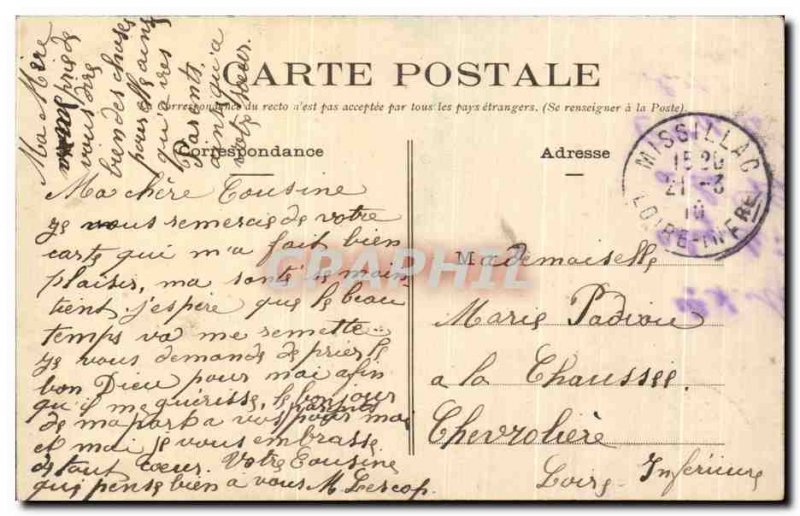 CARTE POSTALE
Correspondance du recto n'est pas acceptée par tous les pays étrangers. (Se renseigner à la Poste)
Correspondance
Adresse
Ma Mère
prie de
vous dire
bien des choses
pour elle ainsi
qu'a vos
Parents,
ainsi qu'a
votre sœur.
Ma chère Cousine
je vous remercie de votre
carte qui m'a fait bien
plaisir, ma santé se main
tient j'espère que le beau
temps va me remettre
je vous demande de prier le
bon Dieu pour moi afin
qu'il me guérisse, le bonjour
de ma part a vos parents
et moi je vous embrasse
de tout cœur. Votre Cousine
qui pense bien a vous M Lescop.
Mademoiselle
Marie Padiou
a la Chaussée
Chevrolière
Loire Inférieure
MISSILLAC
15
21 -3
10
LOIRE-INFRE
CPAPHIL